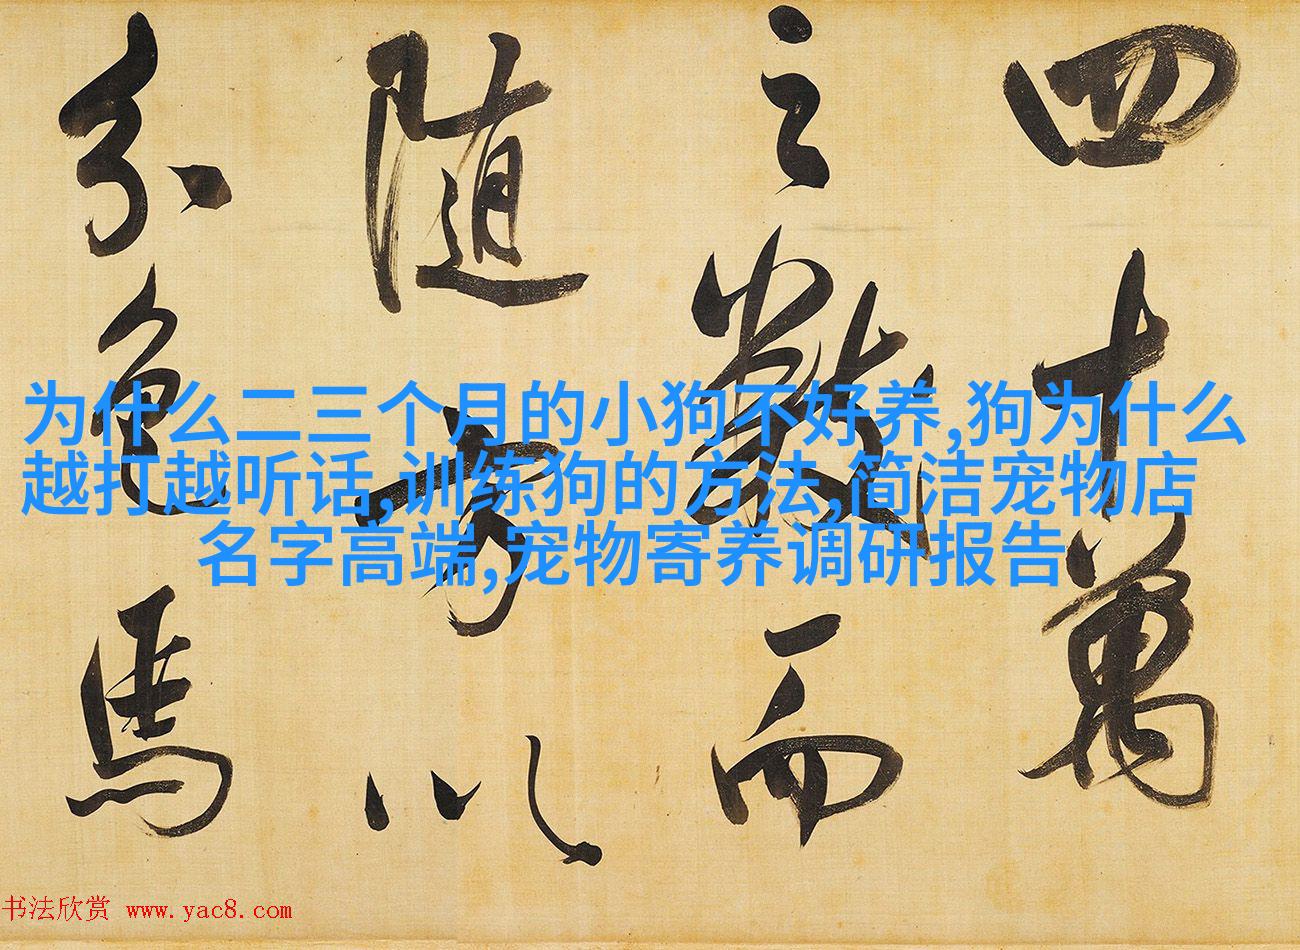 四十萬
之數而
随方以
分色馬
为什么二三个月的小狗不好养,狗为什么
越打越听话,训练狗的方法,简洁宠物店
名字高端,宠物寄养调研报告
书法欣赏 www.yac8.com